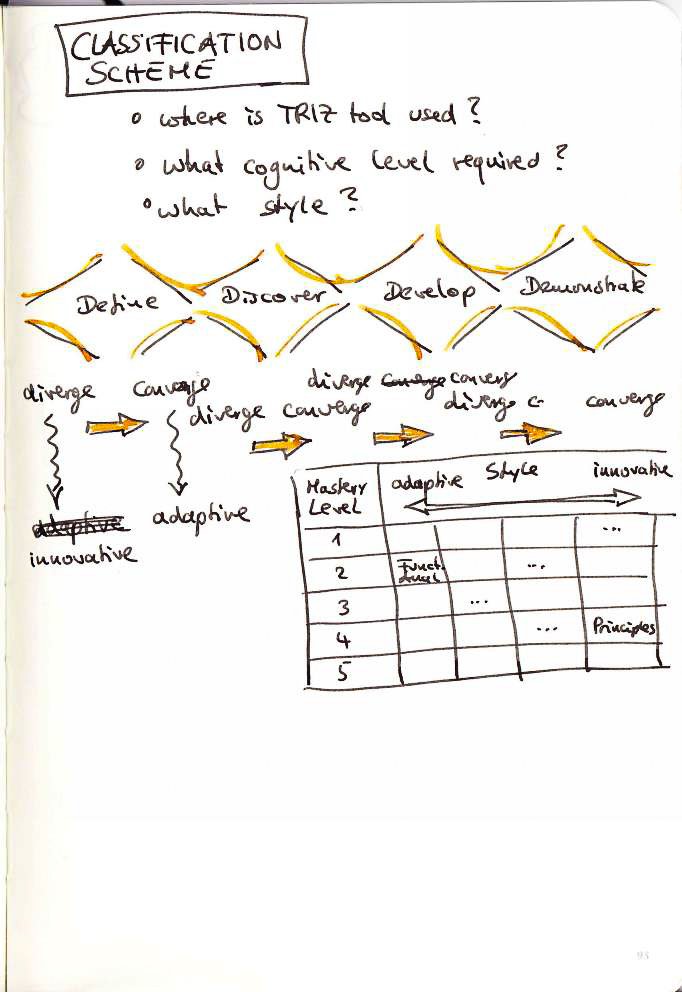 CLASSIFICATION
SCHEME
where is TRIZ tool used?
what cognitive level required?
what style?
Define Discover Develop Demonstrate
diverge converge diverge converge diverge converge diverge c- converge
innovative adaptive
Mastery
Level
adaptive Style innovative
1 ...
2 Funct. ...
3 ...
4 ... Principles
5
93